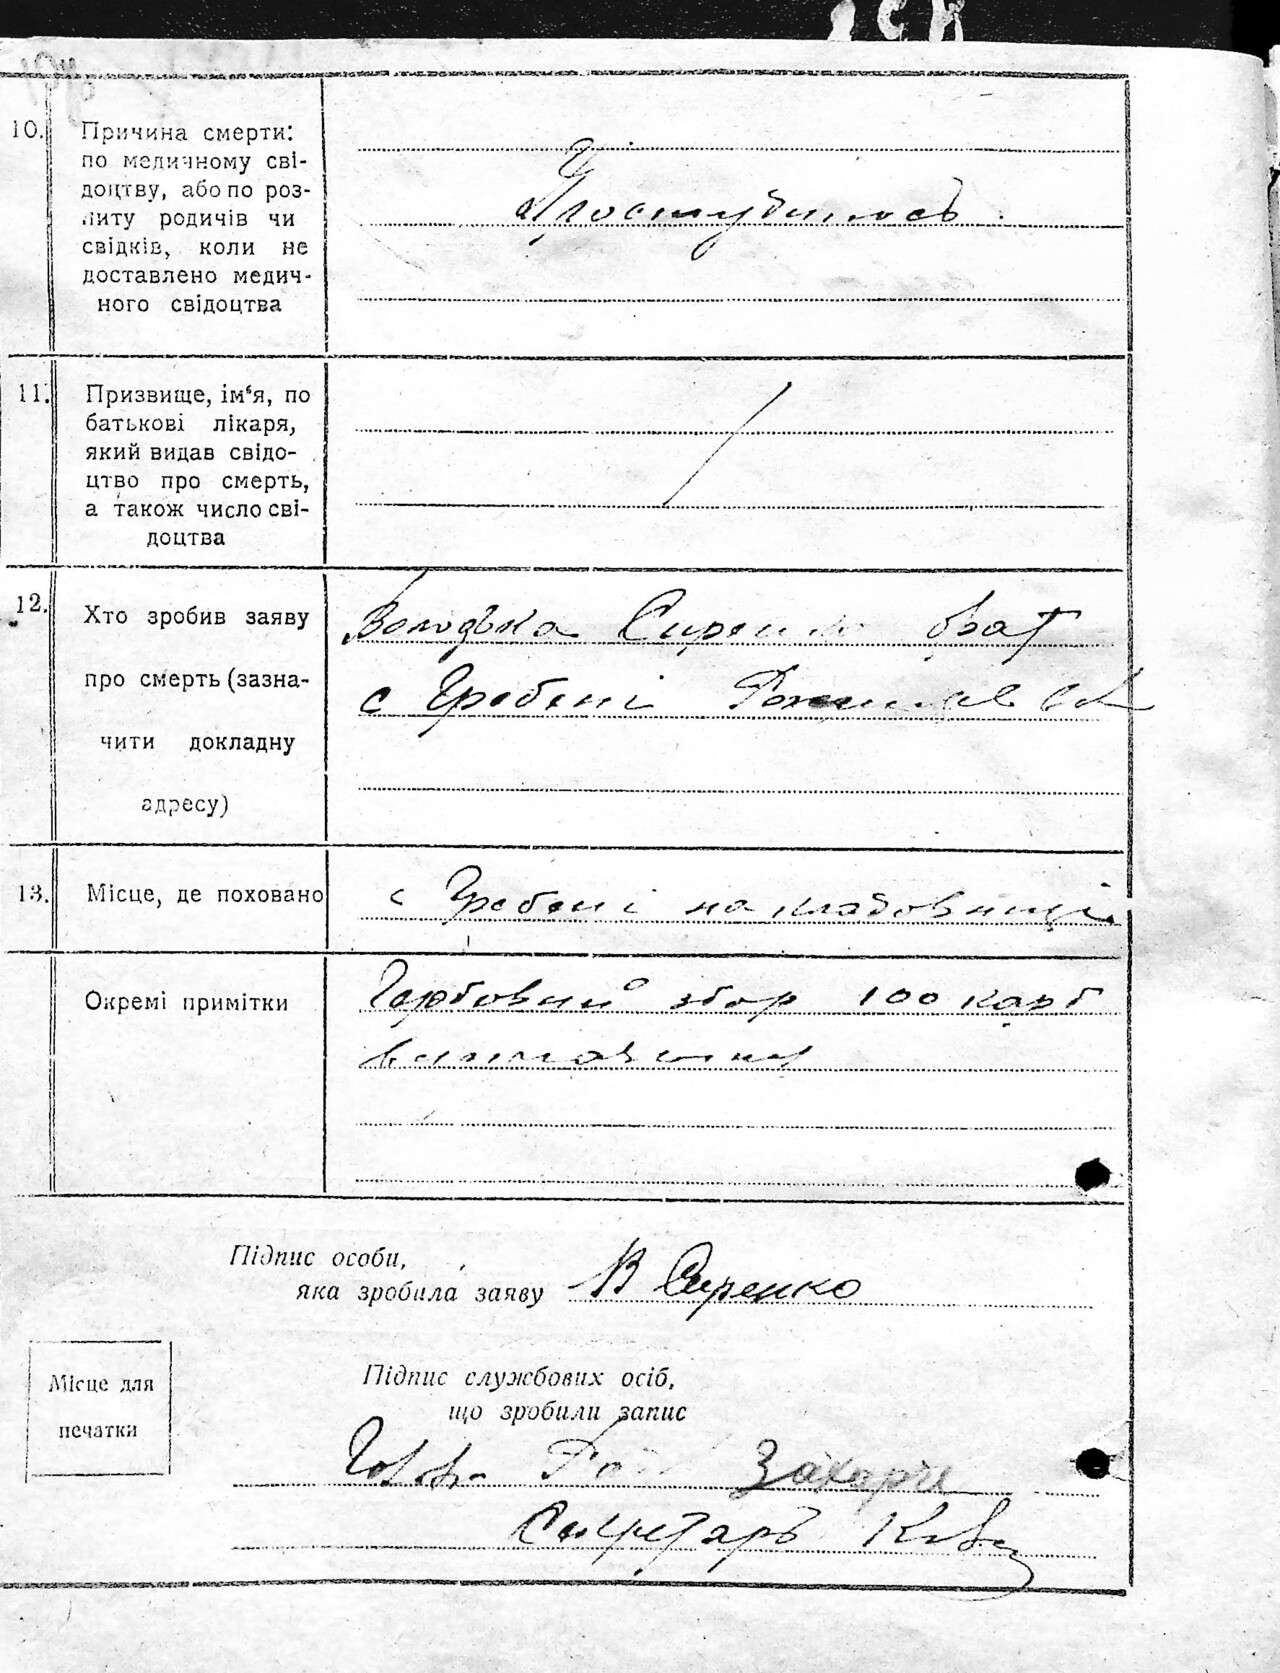 10. Причина смерти:
по медичному сві-
доцтву, або по роз-
питу родичів чи
свідків, коли не
доставлено медич-
ного свідоцтва
Простудилось
11. Призвище, ім‘я, по
батькові лікаря,
який видав свідо-
цтво про смерть,
а також число сві-
доцтва
12. Хто зробив заяву
про смерть (зазна-
чити докладну
адресу)
Володька Сиренко брат
с Гребені
13. Місце, де поховано
с Гребені на кладовищі
Окремі примітки
Гербовий збор 100 карб
Підпис особи,
яка зробила заяву В Сиренко
Місце для
печатки
Підпис службових осіб,
що зробили запис
Захарч
Секретарь